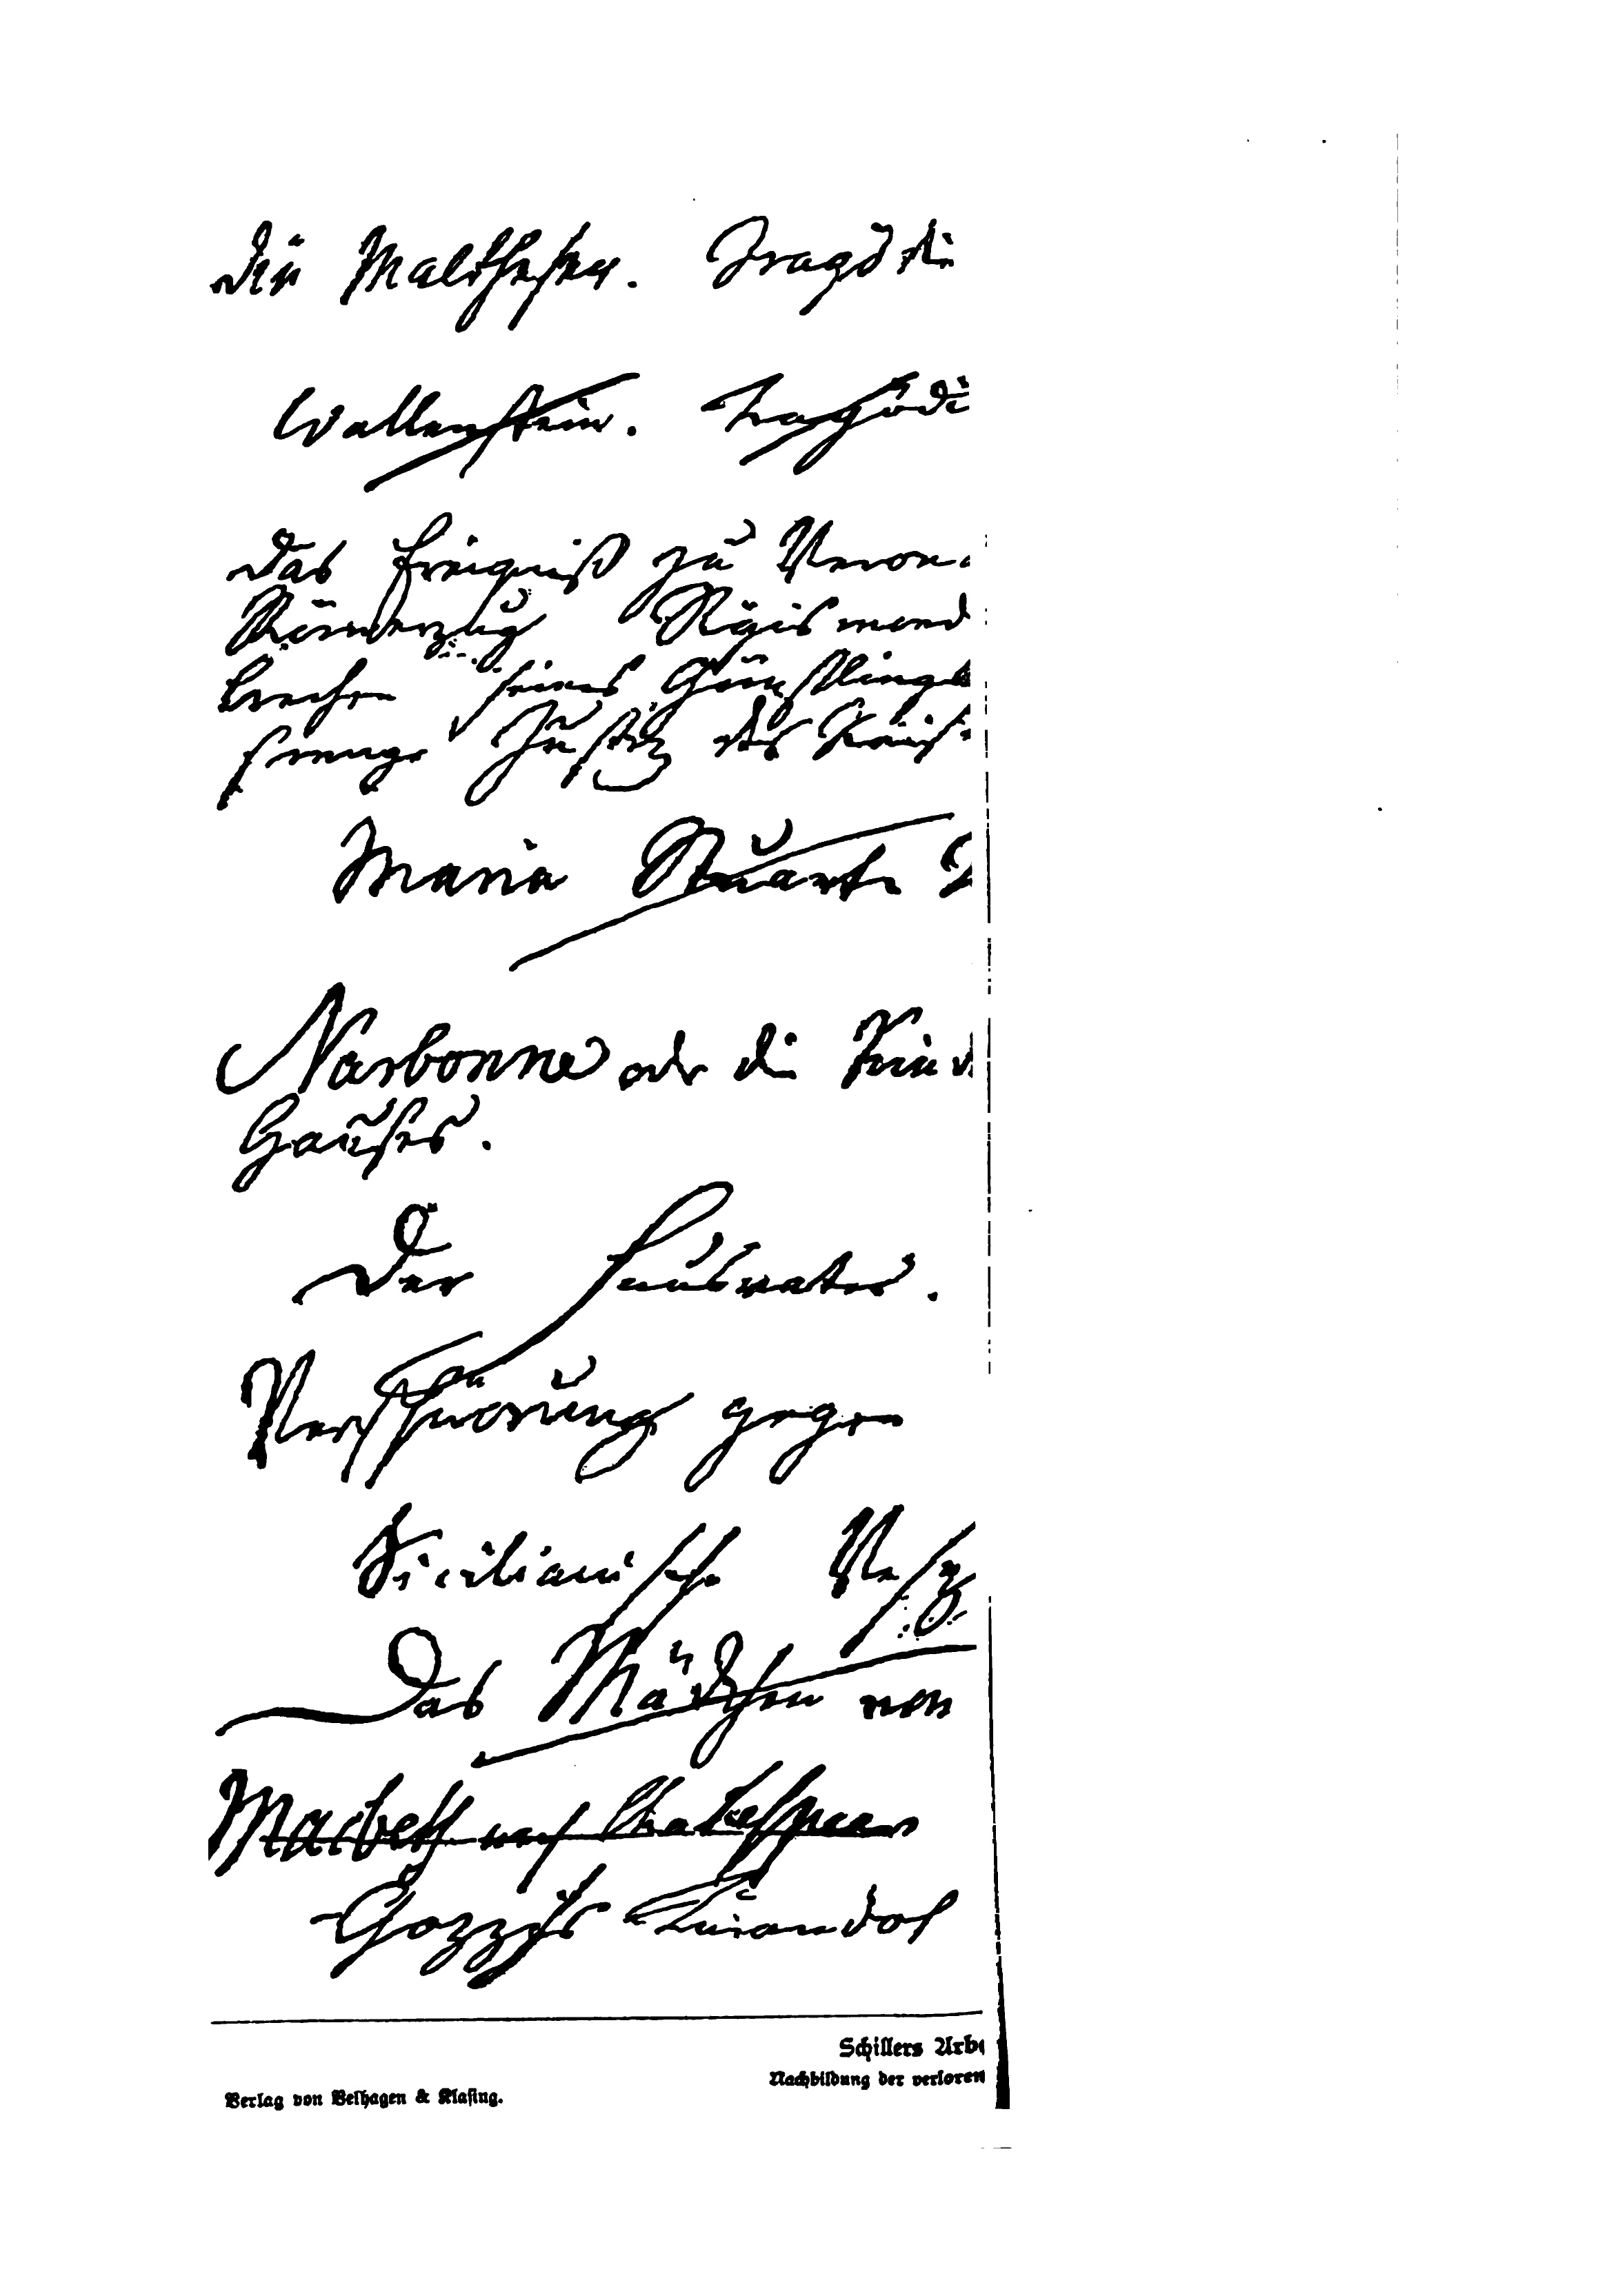 Die Malthefer. Tragödie
Wallenstein. Tragödi
Das Ereigniß zu Veron
Römerzug Sigismund
brechen seines Günstlings
strenge Justiz des Kais
Maria Stuart. T
Narbonne oder die Kind
Hauses.
Der Hausvater.
Verschwörung gegen
Sicilianische Vesp
Das Mädchen von
Macbeth nach Shakespear
Gozzis Turandot
Schillers Arb
Nachbildung der verloren
Verlag von Velhagen & Klasing.